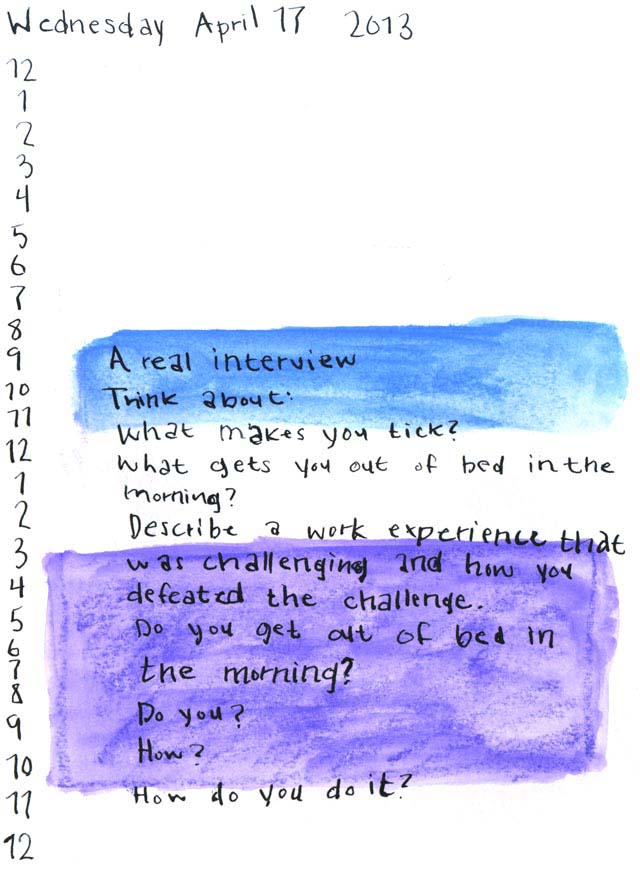 Wednesday April 17 2013
12
1
2
3
4
5
6
7
8
9
10
11
12
1
2
3
4
5
6
7
8
9
10
11
12
A real interview
Think about:
What makes you tick?
What gets you out of bed in the
morning?
Describe a work experience that
was challenging and how you
defeated the challenge.
Do you get out of bed in
the morning?
Do you?
How?
How do you do it?